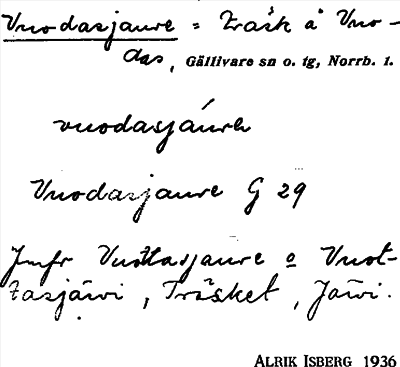 Vuodasjaure = Träsk å Vuo-
das, Gällivare sn o. tg, Norrb. l.
vuodasjáureh
Vuodasjaure G 29
Jmfr Vuottasjaure o Vuot-
tasjärvi, Träsket, Järvi.
ALRIK ISBERG 1936